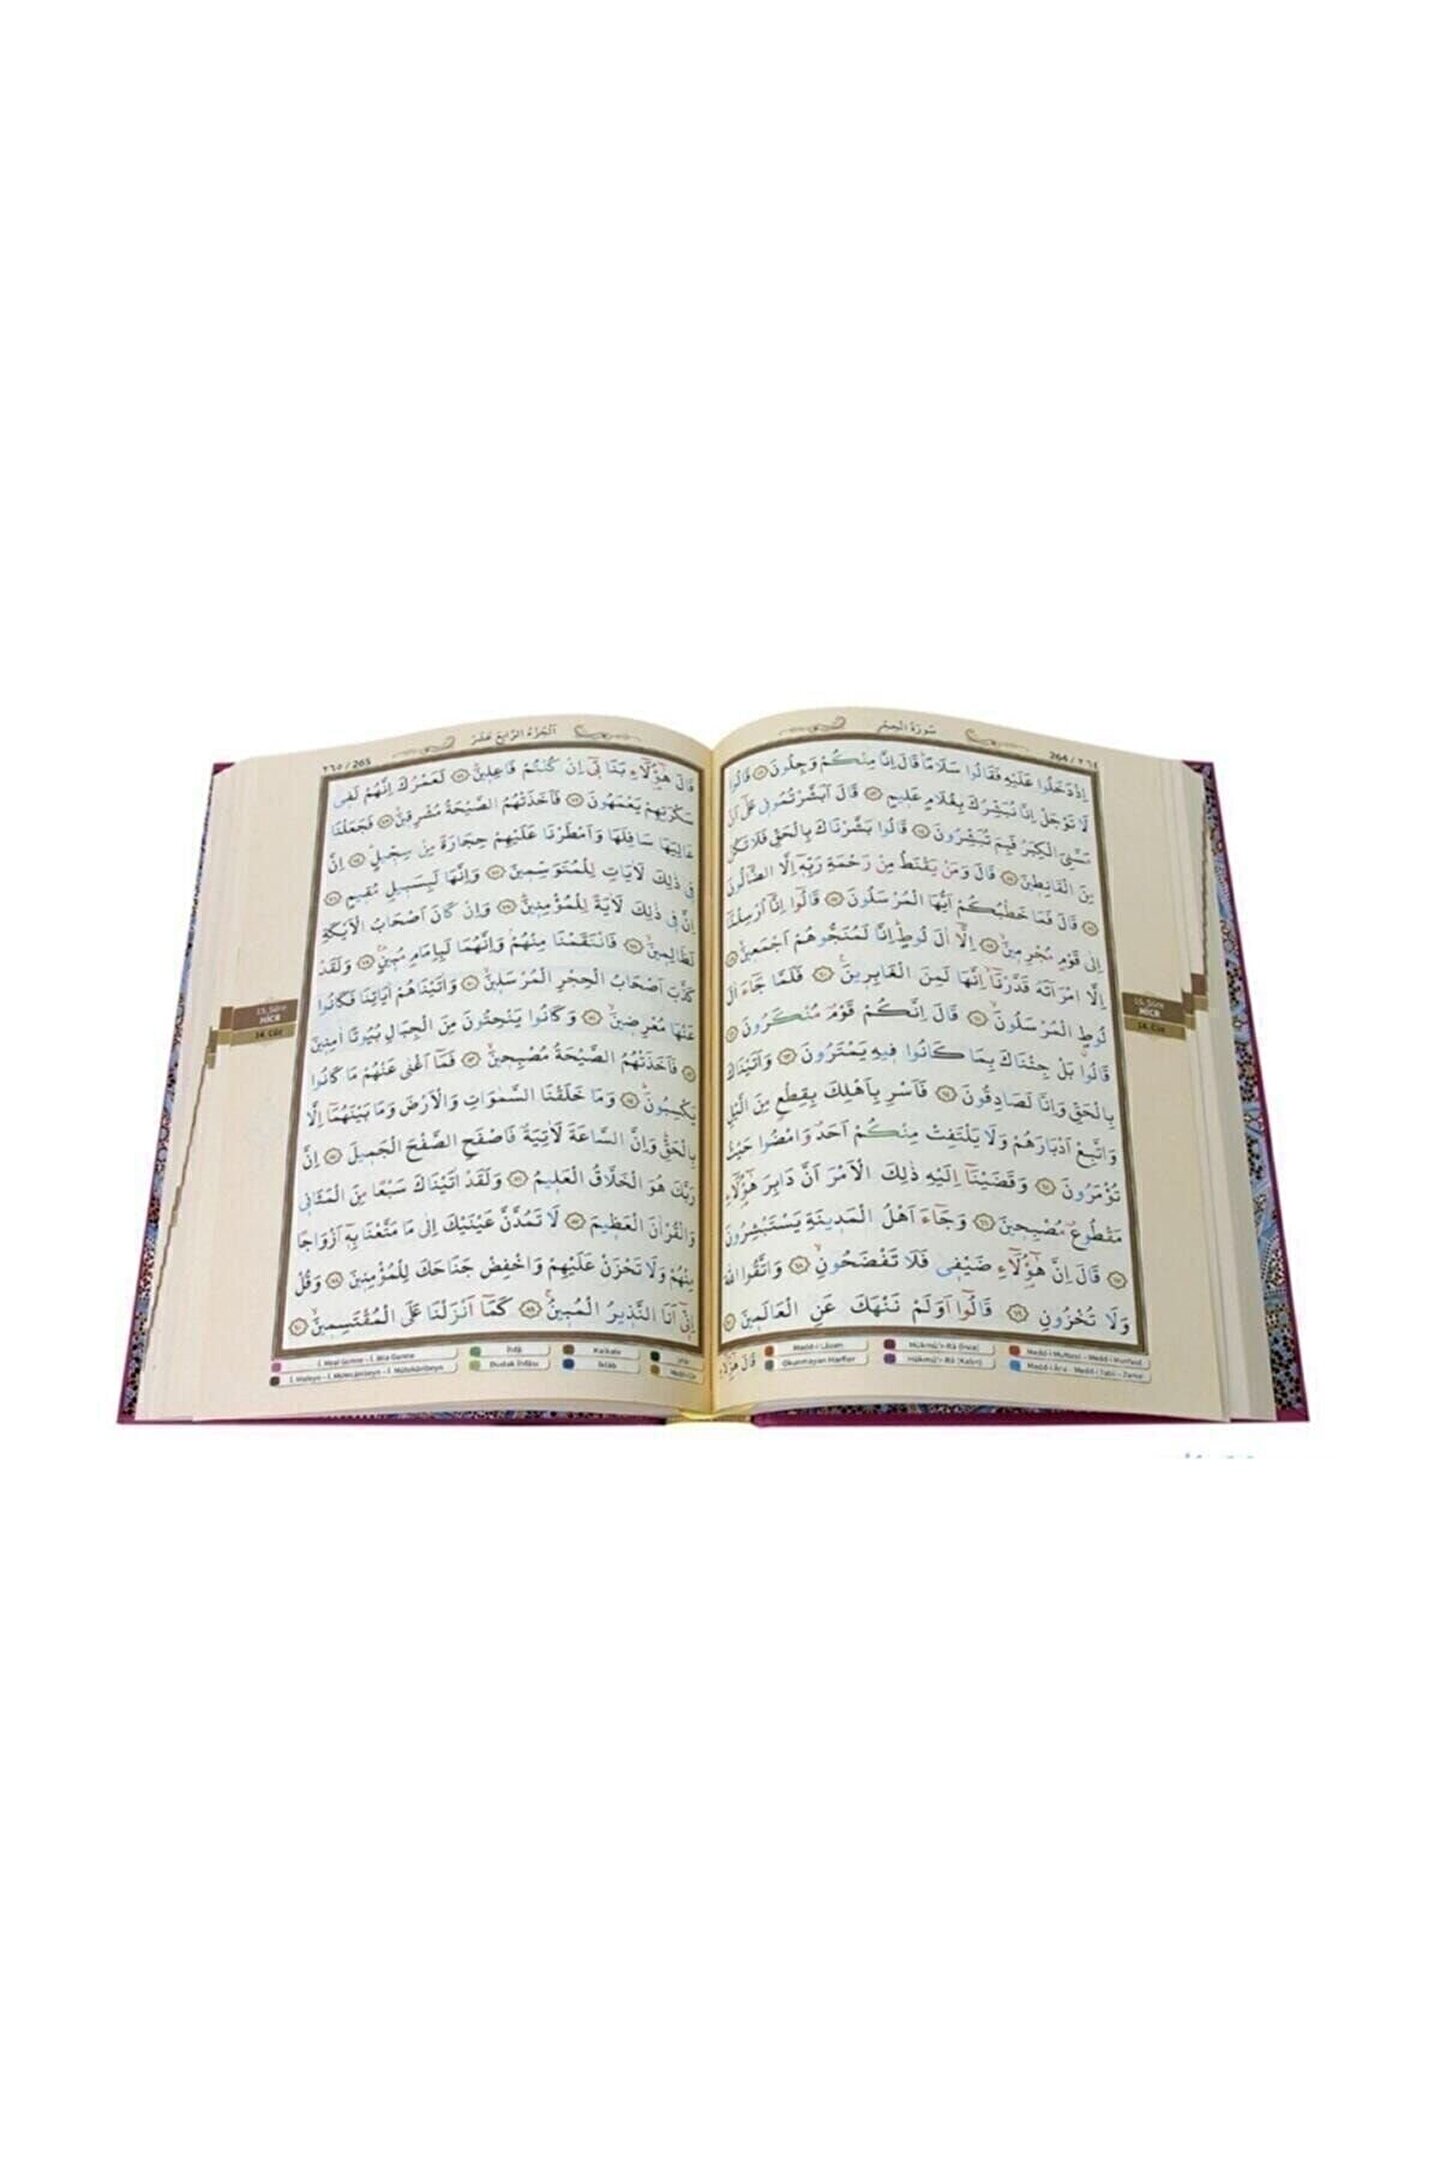 سُورَةُ الْحِجْرِ
264 / ٢٦٤
اِذْ دَخَلُوا عَلَيْهِ فَقَالُوا سَلَامًا قَالَ اِنَّا مِنْكُمْ وَجِلُونَ ﴿٥٢﴾ قَالُوا
لَا تَوْجَلْ اِنَّا نُبَشِّرُكَ بِغُلَامٍ عَلِيمٍ ﴿٥٣﴾ قَالَ اَبَشَّرْتُمُونِي عَلٰٓى اَنْ
مَسَّنِيَ الْكِبَرُ فَبِمَ تُبَشِّرُونَ ﴿٥٤﴾ قَالُوا بَشَّرْنَاكَ بِالْحَقِّ فَلَا تَكُنْ
مِنَ الْقَانِطِينَ ﴿٥٥﴾ قَالَ وَمَنْ يَقْنَطُ مِنْ رَحْمَةِ رَبِّهٖٓ اِلَّا الضَّٓالُّونَ
﴿٥٦﴾ قَالَ فَمَا خَطْبُكُمْ اَيُّهَا الْمُرْسَلُونَ ﴿٥٧﴾ قَالُٓوا اِنَّٓا اُرْسِلْنَٓا
اِلٰى قَوْمٍ مُجْرِمِينَۙ ﴿٥٨﴾ اِلَّٓا اٰلَ لُوطٍۜ اِنَّا لَمُنَجُّوهُمْ اَجْمَعِينَۙ ﴿٥٩﴾
اِلَّا امْرَاَتَهُ قَدَّرْنَٓاۙ اِنَّهَا لَمِنَ الْغَابِرِينَ۟ ﴿٦٠﴾ فَلَمَّا جَٓاءَ اٰلَ
لُوطٍ الْمُرْسَلُونَۙ ﴿٦١﴾ قَالَ اِنَّكُمْ قَوْمٌ مُنْكَرُونَ ﴿٦٢﴾
قَالُوا بَلْ جِئْنَاكَ بِمَا كَانُوا فِيهِ يَمْتَرُونَ ﴿٦٣﴾ وَاَتَيْنَاكَ
بِالْحَقِّ وَاِنَّا لَصَادِقُونَ ﴿٦٤﴾ فَاَسْرِ بِاَهْلِكَ بِقِطْعٍ مِنَ الَّيْلِ
وَاتَّبِعْ اَدْبَارَهُمْ وَلَا يَلْتَفِتْ مِنْكُمْ اَحَدٌ وَامْضُوا حَيْثُ
تُؤْمَرُونَ ﴿٦٥﴾ وَقَضَيْنَٓا اِلَيْهِ ذٰلِكَ الْاَمْرَ اَنَّ دَابِرَ هٰٓؤُلَٓاءِ
مَقْطُوعٌ مُصْبِحِينَ ﴿٦٦﴾ وَجَٓاءَ اَهْلُ الْمَدِينَةِ يَسْتَبْشِرُونَ
﴿٦٧﴾ قَالَ اِنَّ هٰٓؤُلَٓاءِ ضَيْفِي فَلَا تَفْضَحُونِۙ ﴿٦٨﴾ وَاتَّقُوا اللّٰهَ
وَلَا تُخْزُونِ ﴿٦٩﴾ قَالُٓوا اَوَلَمْ نَنْهَكَ عَنِ الْعَالَمِينَ ﴿٧٠﴾
قَالَ هٰٓؤُلَٓاءِ
15. Sûre
HİCR
14. Cüz
Medd-i Lâzım
Hükmü'r-Râ (İnce)
Medd-i Muttasıl - Medd-i Munfasıl
Okunmayan Harfler
Hükmü'r-Râ (Kalın)
Medd-i Ârız - Medd-i Tabîî - Zamir
اَلْجُزْءُ الرَّابِعَ عَشَرَ
٢٦٥ / 265
قَالَ هٰٓؤُلَٓاءِ بَنَاتِٓي اِنْ كُنْتُمْ فَاعِلِينَۜ ﴿٧١﴾ لَعَمْرُكَ اِنَّهُمْ لَفِي
سَكْرَتِهِمْ يَعْمَهُونَ ﴿٧٢﴾ فَاَخَذَتْهُمُ الصَّيْحَةُ مُشْرِقِينَۙ ﴿٧٣﴾ فَجَعَلْنَا
عَالِيَهَا سَافِلَهَا وَاَمْطَرْنَا عَلَيْهِمْ حِجَارَةً مِنْ سِجِّيلٍۜ ﴿٧٤﴾ اِنَّ
فِي ذٰلِكَ لَاٰيَاتٍ لِلْمُتَوَسِّمِينَ ﴿٧٥﴾ وَاِنَّهَا لَبِسَبِيلٍ مُقِيمٍ ﴿٧٦﴾
اِنَّ فِي ذٰلِكَ لَاٰيَةً لِلْمُؤْمِنِينَۜ ﴿٧٧﴾ وَاِنْ كَانَ اَصْحَابُ الْاَيْكَةِ
لَظَالِمِينَۙ ﴿٧٨﴾ فَانْتَقَمْنَا مِنْهُمْۢ وَاِنَّهُمَا لَبِاِمَامٍ مُبِينٍ۟ ﴿٧٩﴾ وَلَقَدْ
كَذَّبَ اَصْحَابُ الْحِجْرِ الْمُرْسَلِينَۙ ﴿٨٠﴾ وَاٰتَيْنَاهُمْ اٰيَاتِنَا فَكَانُوا
عَنْهَا مُعْرِضِينَۙ ﴿٨١﴾ وَكَانُوا يَنْحِتُونَ مِنَ الْجِبَالِ بُيُوتًا اٰمِنِينَ
﴿٨٢﴾ فَاَخَذَتْهُمُ الصَّيْحَةُ مُصْبِحِينَۙ ﴿٨٣﴾ فَمَٓا اَغْنٰى عَنْهُمْ مَا كَانُوا
يَكْسِبُونَۜ ﴿٨٤﴾ وَمَا خَلَقْنَا السَّمٰوَاتِ وَالْاَرْضَ وَمَا بَيْنَهُمَٓا اِلَّا
بِالْحَقِّۜ وَاِنَّ السَّاعَةَ لَاٰتِيَةٌ فَاصْفَحِ الصَّفْحَ الْجَمِيلَ ﴿٨٥﴾ اِنَّ
رَبَّكَ هُوَ الْخَلَّاقُ الْعَلِيمُ ﴿٨٦﴾ وَلَقَدْ اٰتَيْنَاكَ سَبْعًا مِنَ الْمَثَانِي
وَالْقُرْاٰنَ الْعَظِيمَ ﴿٨٧﴾ لَا تَمُدَّنَّ عَيْنَيْكَ اِلٰى مَا مَتَّعْنَا بِهٖٓ اَزْوَاجًا
مِنْهُمْ وَلَا تَحْزَنْ عَلَيْهِمْ وَاخْفِضْ جَنَاحَكَ لِلْمُؤْمِنِينَ ﴿٨٨﴾ وَقُلْ
اِنِّٓي اَنَا النَّذِيرُ الْمُبِينُۚ ﴿٨٩﴾ كَمَٓا اَنْزَلْنَا عَلَى الْمُقْتَسِمِينَۙ ﴿٩٠﴾
15. Sûre
HİCR
14. Cüz
İ. Meal Gunne - İ. Bila Gunne
İhfâ
Kalkale
İ. Misleyn - İ. Mütecâniseyn - İ. Mütekâribeyn
Dudak İhfâsı
İklâb